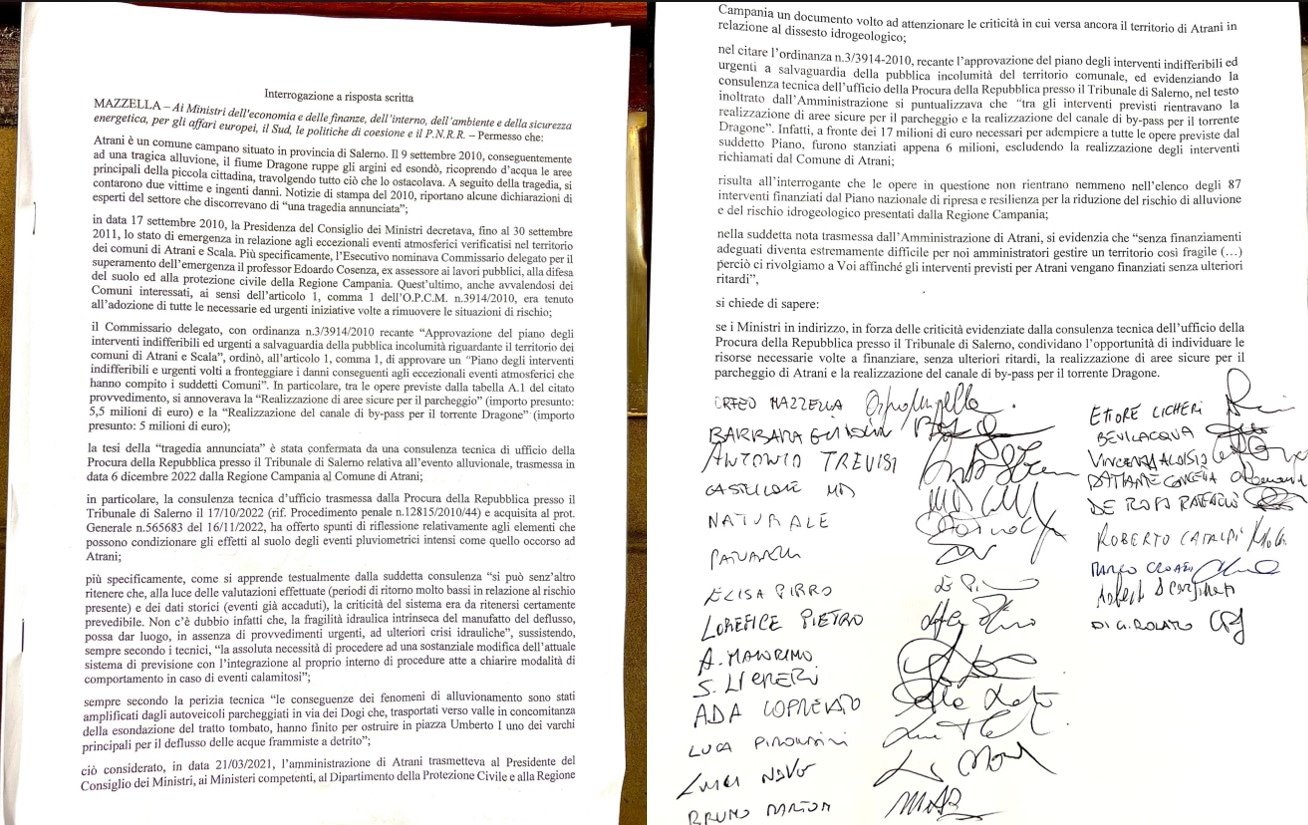 Interrogazione a risposta scritta
MAZZELLA – Ai Ministri dell'economia e delle finanze, dell'interno, dell'ambiente e della sicurezza
energetica, per gli affari europei, il Sud, le politiche di coesione e il P.N.R.R. – Permesso che:
Atrani è un comune campano situato in provincia di Salerno. Il 9 settembre 2010, conseguentemente
ad una tragica alluvione, il fiume Dragone ruppe gli argini ed esondò, ricoprendo d'acqua le aree
principali della piccola cittadina, travolgendo tutto ciò che lo ostacolava. A seguito della tragedia, si
contarono due vittime e ingenti danni. Notizie di stampa del 2010, riportano alcune dichiarazioni di
esperti del settore che discorrevano di “una tragedia annunciata”;
in data 17 settembre 2010, la Presidenza del Consiglio dei Ministri decretava, fino al 30 settembre
2011, lo stato di emergenza in relazione agli eccezionali eventi atmosferici verificatisi nel territorio
dei comuni di Atrani e Scala. Più specificamente, l'Esecutivo nominava Commissario delegato per il
superamento dell'emergenza il professor Edoardo Cosenza, ex assessore ai lavori pubblici, alla difesa
del suolo ed alla protezione civile della Regione Campania. Quest'ultimo, anche avvalendosi dei
Comuni interessati, ai sensi dell'articolo 1, comma 1 dell'O.P.C.M. n.3914/2010, era tenuto
all'adozione di tutte le necessarie ed urgenti iniziative volte a rimuovere le situazioni di rischio;
il Commissario delegato, con ordinanza n.3/3914/2010 recante “Approvazione del piano degli
interventi indifferibili ed urgenti a salvaguardia della pubblica incolumità riguardante il territorio dei
comuni di Atrani e Scala”, ordinò, all'articolo 1, comma 1, di approvare un “Piano degli interventi
indifferibili e urgenti volti a fronteggiare i danni conseguenti agli eccezionali eventi atmosferici che
hanno compito i suddetti Comuni”. In particolare, tra le opere previste dalla tabella A.1 del citato
provvedimento, si annoverava la “Realizzazione di aree sicure per il parcheggio” (importo presunto:
5,5 milioni di euro) e la “Realizzazione del canale di by-pass per il torrente Dragone” (importo
presunto: 5 milioni di euro);
la tesi della “tragedia annunciata” è stata confermata da una consulenza tecnica di ufficio della
Procura della Repubblica presso il Tribunale di Salerno relativa all'evento alluvionale, trasmessa in
data 6 dicembre 2022 dalla Regione Campania al Comune di Atrani;
in particolare, la consulenza tecnica d'ufficio trasmessa dalla Procura della Repubblica presso il
Tribunale di Salerno il 17/10/2022 (rif. Procedimento penale n.12815/2010/44) e acquisita al prot.
Generale n.565683 del 16/11/2022, ha offerto spunti di riflessione relativamente agli elementi che
possono condizionare gli effetti al suolo degli eventi pluviometrici intensi come quello occorso ad
Atrani;
più specificamente, come si apprende testualmente dalla suddetta consulenza “si può senz'altro
ritenere che, alla luce delle valutazioni effettuate (periodi di ritorno molto bassi in relazione al rischio
presente) e dei dati storici (eventi già accaduti), la criticità del sistema era da ritenersi certamente
prevedibile. Non c'è dubbio infatti che, la fragilità idraulica intrinseca del manufatto del deflusso,
possa dar luogo, in assenza di provvedimenti urgenti, ad ulteriori crisi idrauliche”, sussistendo,
sempre secondo i tecnici, “la assoluta necessità di procedere ad una sostanziale modifica dell'attuale
sistema di previsione con l'integrazione al proprio interno di procedure atte a chiarire modalità di
comportamento in caso di eventi calamitosi”;
sempre secondo la perizia tecnica “le conseguenze dei fenomeni di alluvionamento sono stati
amplificati dagli autoveicoli parcheggiati in via dei Dogi che, trasportati verso valle in concomitanza
della esondazione del tratto tombato, hanno finito per ostruire in piazza Umberto I uno dei varchi
principali per il deflusso delle acque frammiste a detrito”;
ciò considerato, in data 21/03/2021, l'amministrazione di Atrani trasmetteva al Presidente del
Consiglio dei Ministri, ai Ministeri competenti, al Dipartimento della Protezione Civile e alla Regione
Campania un documento volto ad attenzionare le criticità in cui versa ancora il territorio di Atrani in
relazione al dissesto idrogeologico;
nel citare l'ordinanza n.3/3914-2010, recante l'approvazione del piano degli interventi indifferibili ed
urgenti a salvaguardia della pubblica incolumità del territorio comunale, ed evidenziando la
consulenza tecnica dell'ufficio della Procura della Repubblica presso il Tribunale di Salerno, nel testo
inoltrato dall'Amministrazione si puntualizzava che “tra gli interventi previsti rientravano la
realizzazione di aree sicure per il parcheggio e la realizzazione del canale di by-pass per il torrente
Dragone”. Infatti, a fronte dei 17 milioni di euro necessari per adempiere a tutte le opere previste dal
suddetto Piano, furono stanziati appena 6 milioni, escludendo la realizzazione degli interventi
richiamati dal Comune di Atrani;
risulta all'interrogante che le opere in questione non rientrano nemmeno nell'elenco degli 87
interventi finanziati dal Piano nazionale di ripresa e resilienza per la riduzione del rischio di alluvione
e del rischio idrogeologico presentati dalla Regione Campania;
nella suddetta nota trasmessa dall'Amministrazione di Atrani, si evidenzia che “senza finanziamenti
adeguati diventa estremamente difficile per noi amministratori gestire un territorio così fragile (…)
perciò ci rivolgiamo a Voi affinché gli interventi previsti per Atrani vengano finanziati senza ulteriori
ritardi”,
si chiede di sapere:
se i Ministri in indirizzo, in forza delle criticità evidenziate dalla consulenza tecnica dell'ufficio della
Procura della Repubblica presso il Tribunale di Salerno, condividano l'opportunità di individuare le
risorse necessarie volte a finanziare, senza ulteriori ritardi, la realizzazione di aree sicure per il
parcheggio di Atrani e la realizzazione del canale di by-pass per il torrente Dragone.
ORFEO MAZZELLA
BARBARA GUIDOLIN
ANTONIO TREVISI
CASTELLONE
NATURALE
PATUANELLI
ELISA PIRRO
LOREFICE PIETRO
A. MAIORINO
S. LICHERI
ADA LOPREIATO
LUCA PIRONDINI
LUIGI NAVE
BRUNO MARTON
ETTORE LICHERI
BEVILACQUA
VINCENZA ALOISIO
DAMANTE CONCETTA
DE ROSA RAFFAELE
ROBERTO CATALDI
MARCO CROATTI
DI GIROLAMO